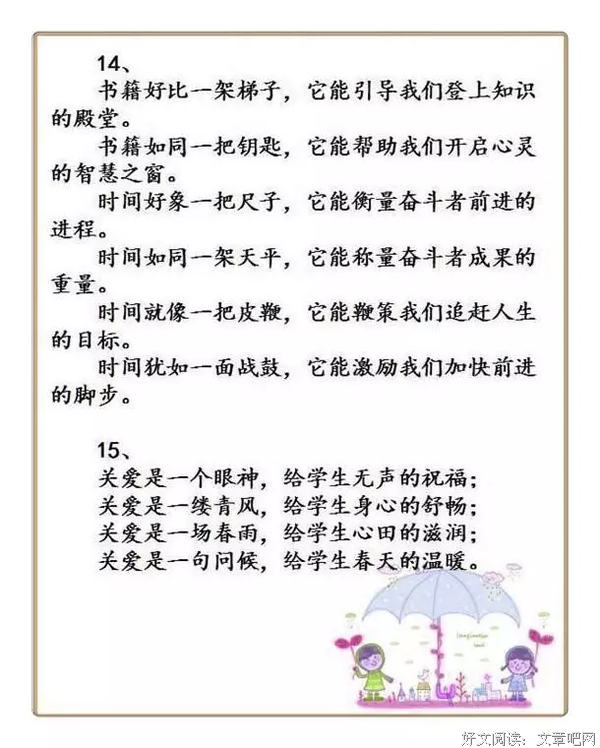 14、
书籍好比一架梯子，它能引导我们登上知识
的殿堂。
书籍如同一把钥匙，它能帮助我们开启心灵
的智慧之窗。
时间好象一把尺子，它能衡量奋斗者前进的
进程。
时间如同一架天平，它能称量奋斗者成果的
重量。
时间就像一把皮鞭，它能鞭策我们追赶人生
的目标。
时间犹如一面战鼓，它能激励我们加快前进
的脚步。
15、
关爱是一个眼神，给学生无声的祝福；
关爱是一缕青风，给学生身心的舒畅；
关爱是一场春雨，给学生心田的滋润；
关爱是一句问候，给学生春天的温暖。
Imagination
land
好文阅读：文章吧网